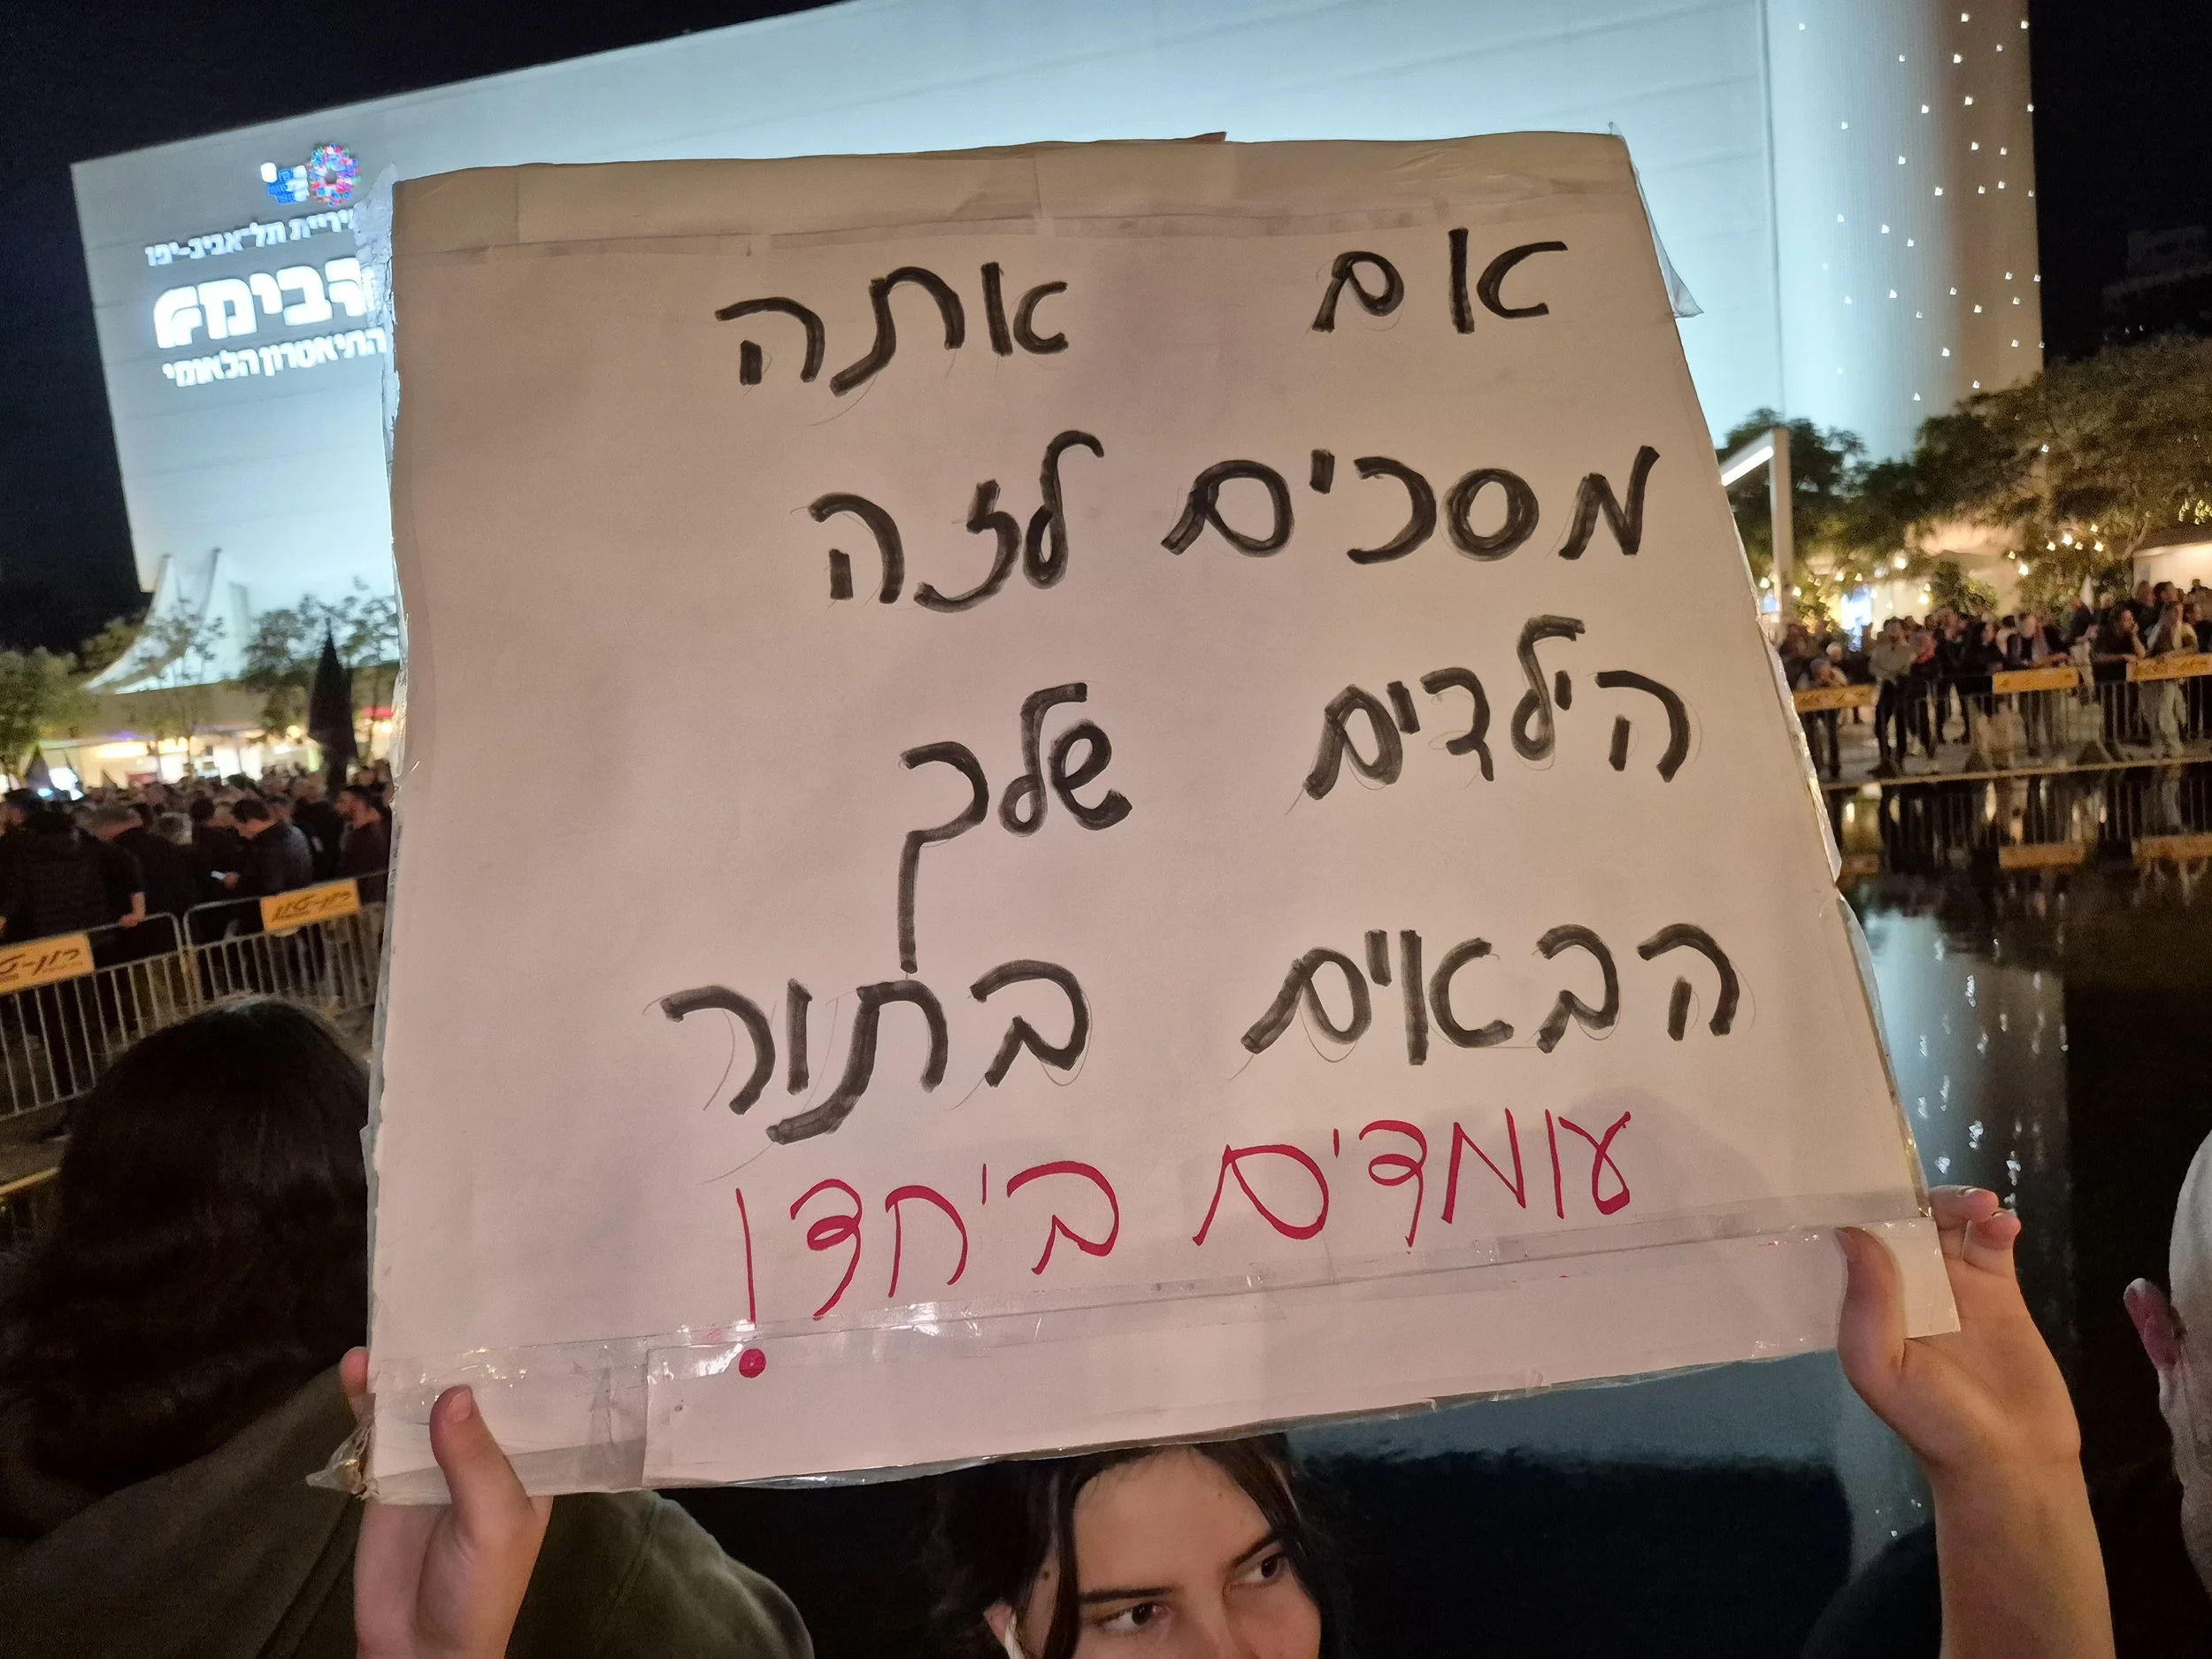 עיריית תל-אביב-יפו
הבימה
התיאטרון הלאומי
אם אתה
מסכים לזה
הילדים שלך
הבאים בתור
עומדים ביחד!
רון-טון